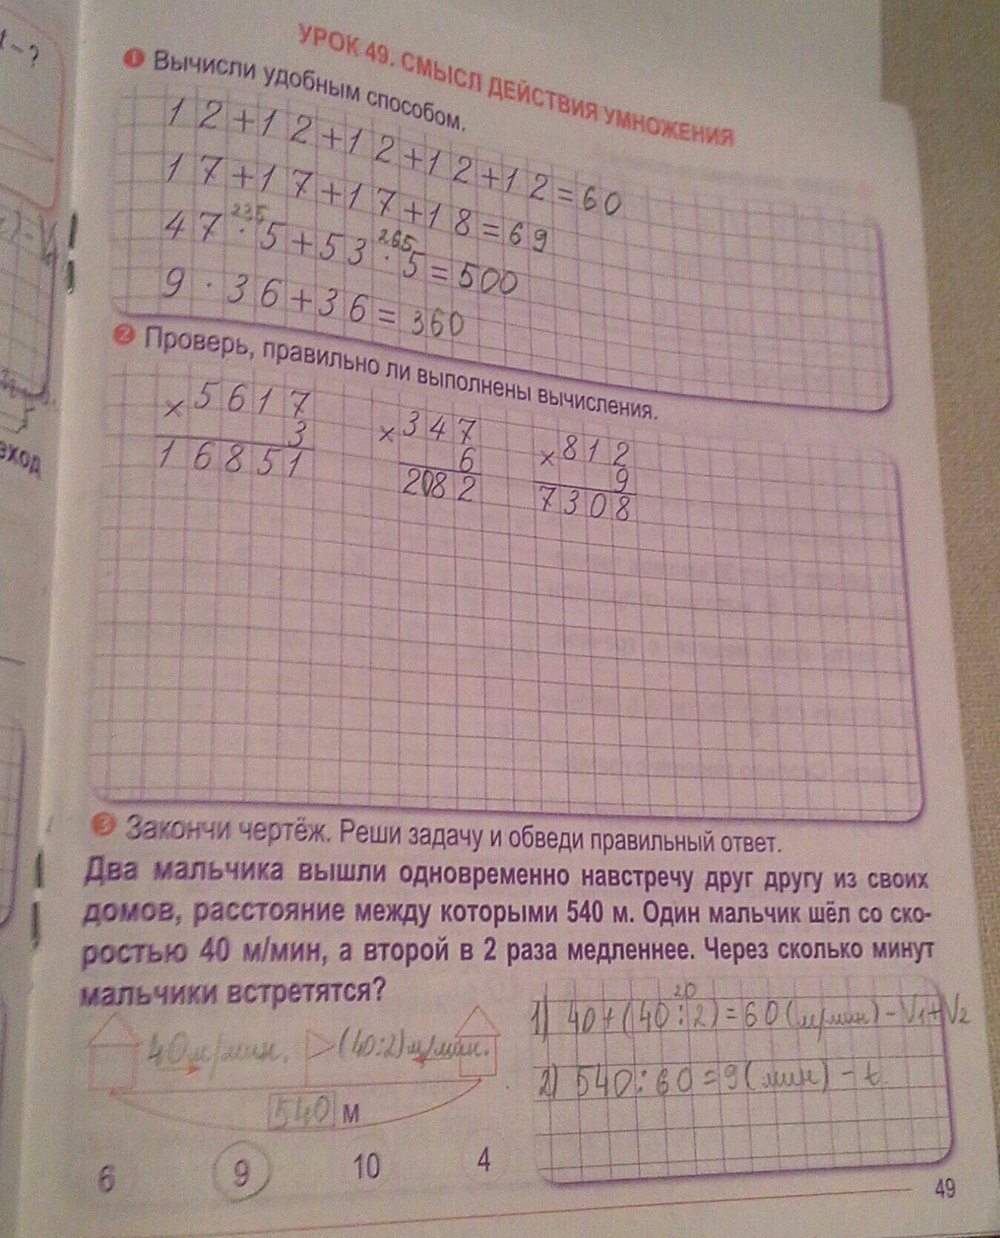 t – ?
УРОК 49. СМЫСЛ ДЕЙСТВИЯ УМНОЖЕНИЯ
1 Вычисли удобным способом.
12+12+12+12+12=60
17+17+17+18=69
235 265
47·5+53·5=500
9·36+36=360
2 Проверь, правильно ли выполнены вычисления.
×5617 ×347 ×812
3 6 9
16851 2082 7308
еход
3 Закончи чертёж. Реши задачу и обведи правильный ответ.
Два мальчика вышли одновременно навстречу друг другу из своих
домов, расстояние между которыми 540 м. Один мальчик шёл со ско-
ростью 40 м/мин, а второй в 2 раза медленнее. Через сколько минут
мальчики встретятся?
20
1) 40+(40:2)=60(м/мин) – V1+V2
40м/мин. (40:2)м/мин.
2) 540:60=9(мин) – t
540 м
6 9 10 4
49